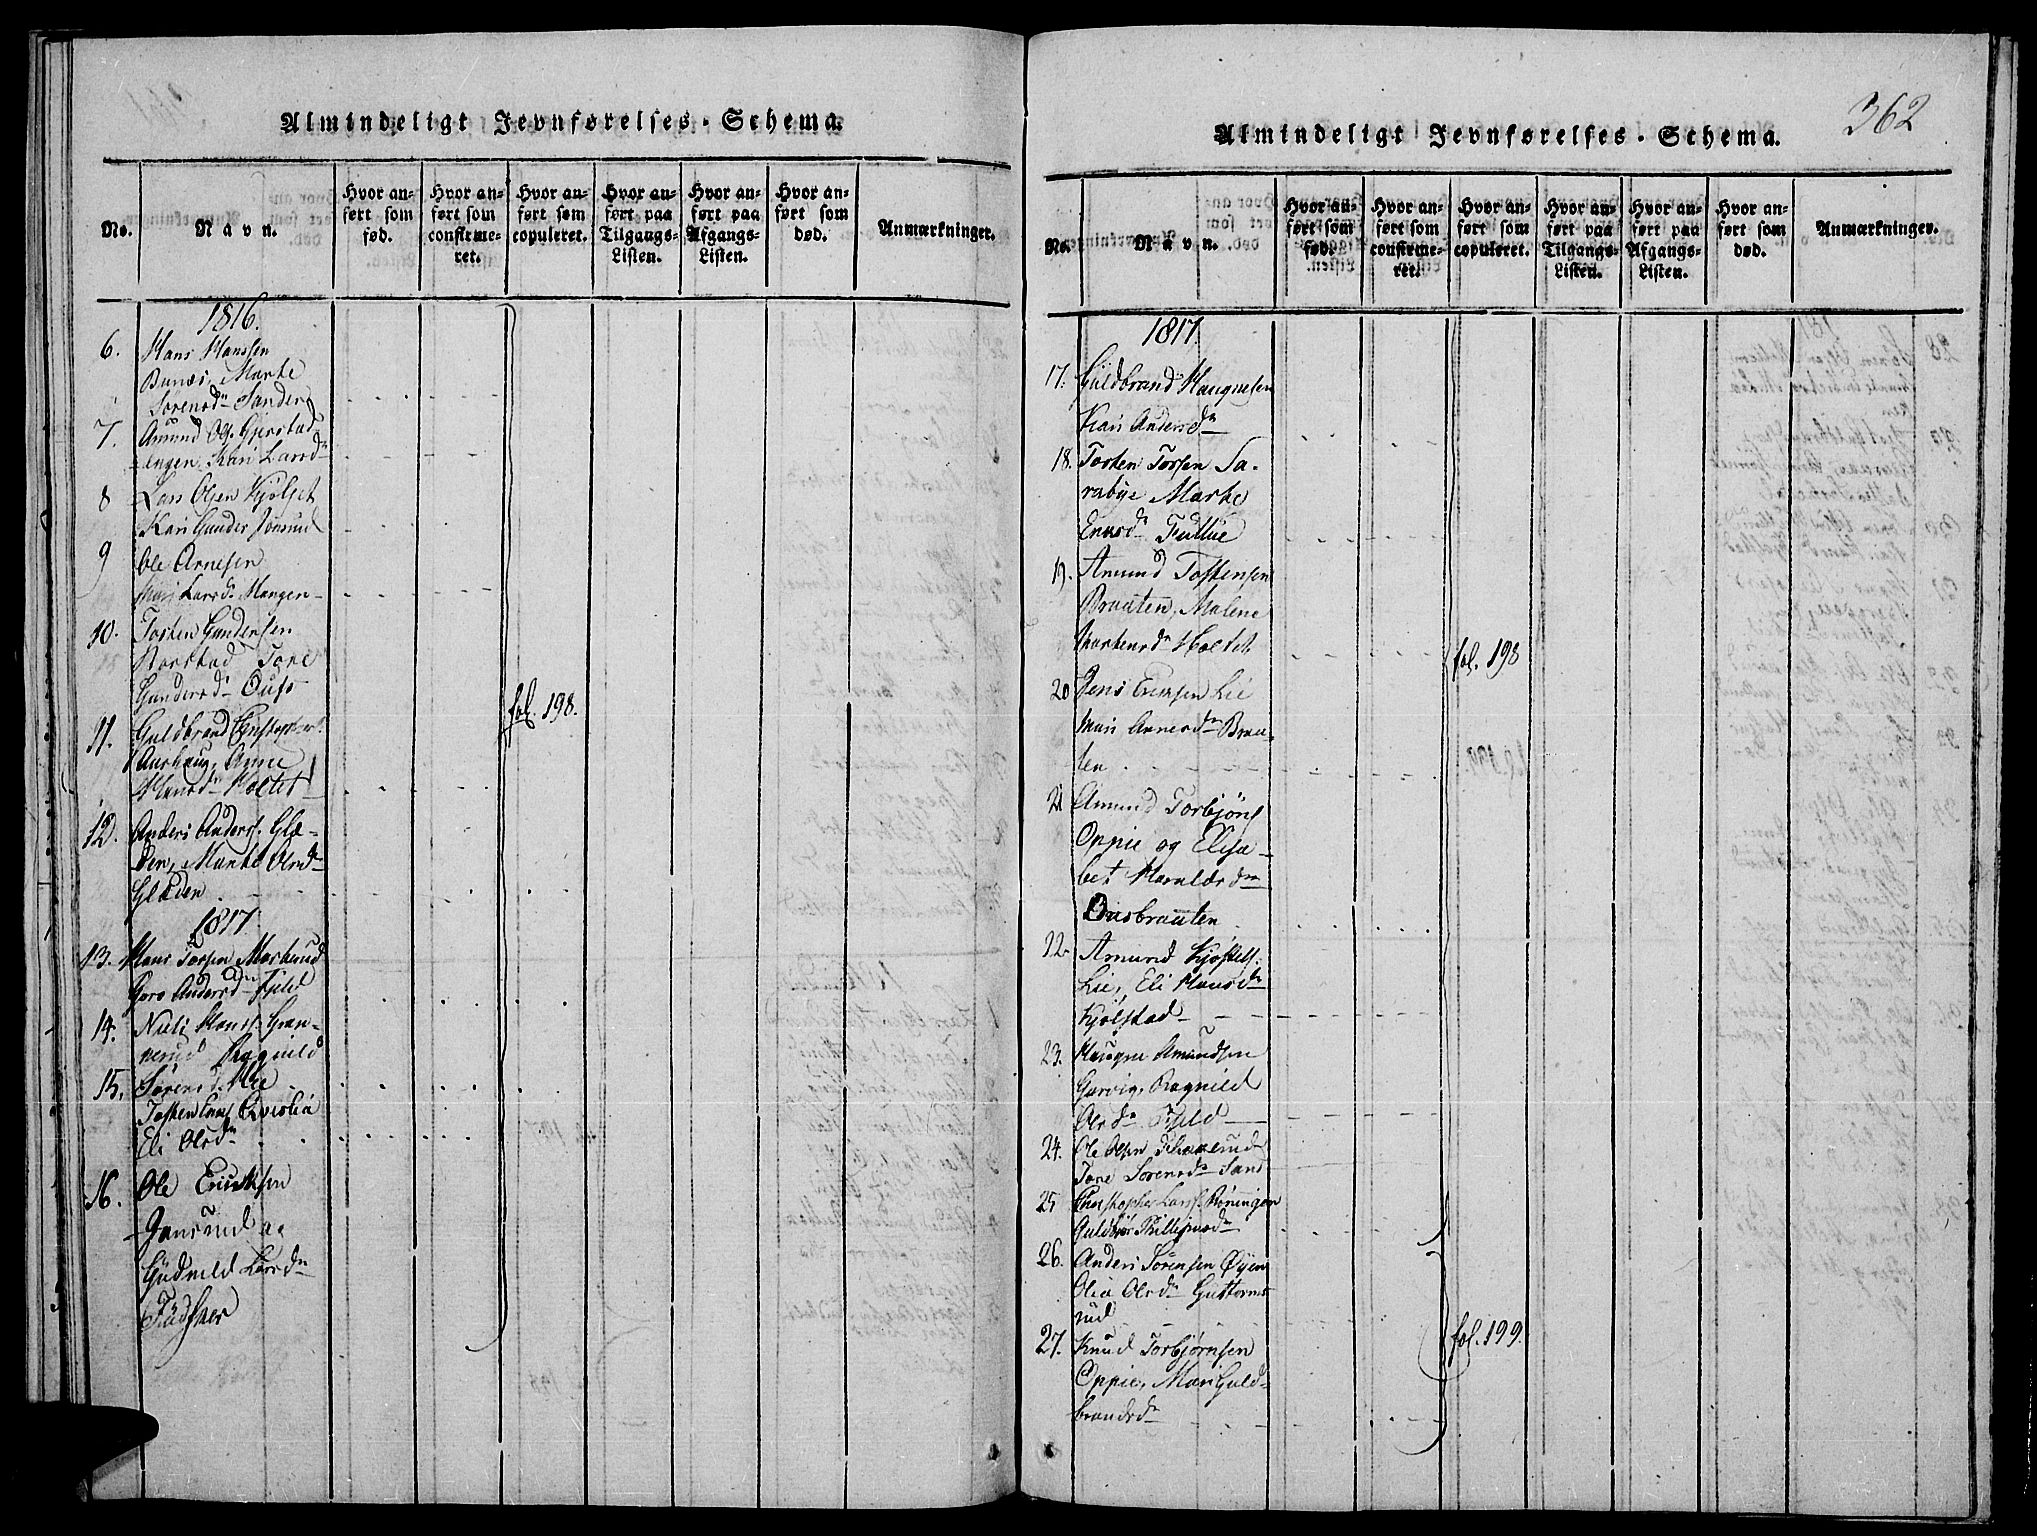 Almindeligt Jevnførelses-Schema.
No.
Navn.
Hvor an-
ført som
fød.
Hvor an-
ført som
confirme-
ret.
Hvor an-
ført som
copuleret.
Hvor an-
ført paa
Tilgangs-
Listen.
Hvor an-
ført paa
Afgangs-
Listen.
Hvor an-
ført som
død.
Anmærkninger.
1816.
6. Hans Hanssen
Bunæs, Marte
Sörensdn Sander
7. Amund Ols. Gjerstad-
engen, Kari Larsdn
8 Lars Olsen Kjölset
Kari Gunder
9 Ole Arnesen
Mari Larsdn Mangen
10. Tosten Gundersen
Tore
Gundersdn Ousb
11. Guldbrand Christophers.
Aurhaug, Anne
Hansdn Holtet
12. Anders Anderss. Glæ-
den, Marte Olsdn
Glæden
fol. 198.
1817.
13. Hans Torsen Morterud
Goro Andersdn Fjeld
14. Niels Hanss. Gran-
nerud Ragnild
15. Sörensdn Lie
Tosten Qvislia
Eli Olsdn
16. Ole Ericksen
Jansrud og
Gudnild Larsdn
Almindeligt Jevnførelses-Schema.
362
No.
Navn.
Hvor an-
ført som
fød.
Hvor an-
ført som
confirme-
ret.
Hvor an-
ført som
copuleret.
Hvor an-
ført paa
Tilgangs-
Listen.
Hvor an-
ført paa
Afgangs-
Listen.
Hvor an-
ført som
død.
Anmærkninger.
1817.
17. Guldbrand Haugnesen
Kari Andersdn
18. Tosten Torsen Sa-
rabye Marte
Enersdn
19. Amund Tostensen
Braaten, Malene
Mortensdn Holtet
fol. 198
20 Jens Ericksen Lie
Mari Arnesdn Braa-
ten
21 Amund Torbjöns
Oppie og Elisa-
bet Haraldsdn
Ousbraaten
22. Amund Kjöstels.
Lie, Eli Hansdn
Kjölstad
23. Haugne Amundsen
Garvig, Ragnild
Olsdn Fjeld
24. Ole Olsen
Tore Sörensdn Sand
25 Christopher Larss. Röningen
Guldbjör Phillipsdn
26. Anders Sörensen Öyen
Olia Olsdn Guttorms-
rud
27. Knud Torbjörnsen
Oppie, Mari Guld-
brandsdn
fol. 199.